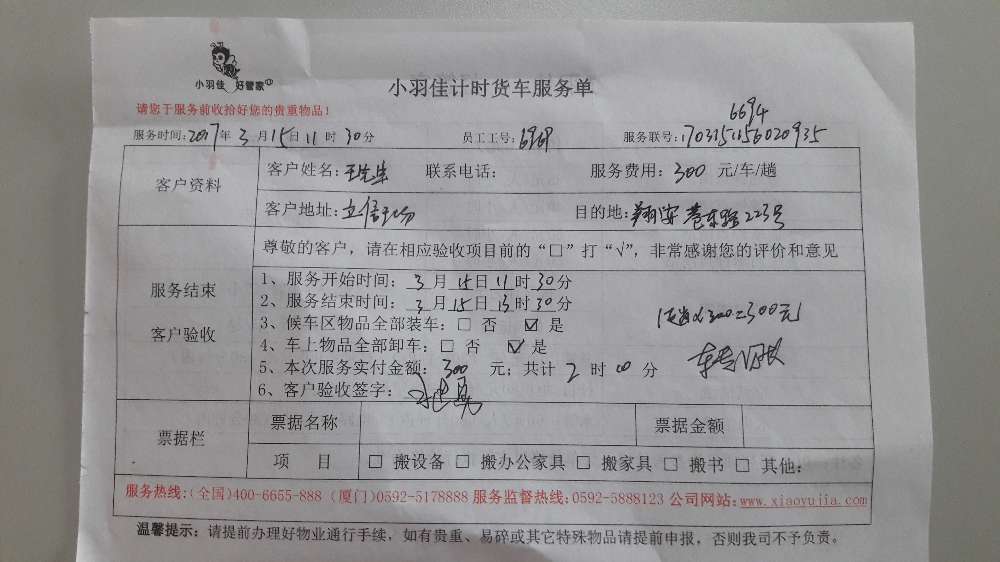 小羽佳 好管家
小羽佳计时货车服务单
请您于服务前收拾好您的贵重物品!
6694
服务时间:2017年3月15日11时30分 员工工号:6969 服务联号:1703151156020935
客户资料
客户姓名:王先生 联系电话: 服务费用:300 元/车/趟
客户地址:立信广场 目的地:翔安巷东路223号
服务结束
客户验收
尊敬的客户,请在相应验收项目前的“□”打“√”,非常感谢您的评价和意见
1、服务开始时间:3月15日11时30分
2、服务结束时间:3月15日13时30分
3、候车区物品全部装车:□ 否 ☑ 是
4、车上物品全部卸车:□ 否 ☑ 是
5、本次服务实付金额:300 元;共计2时00分
6、客户验收签字:
1趟×300=300元
票据栏
票据名称 票据金额
项 目 □ 搬设备 □ 搬办公家具 □ 搬家具 □ 搬书 □ 其他:
服务热线:(全国)400-6655-888 (厦门)0592-5178888 服务监督热线:0592-5888123 公司网站:www.xiaoyujia.com
温馨提示:请提前办理好物业通行手续,如有贵重、易碎或其它特殊物品请提前申报,否则我司不予负责。